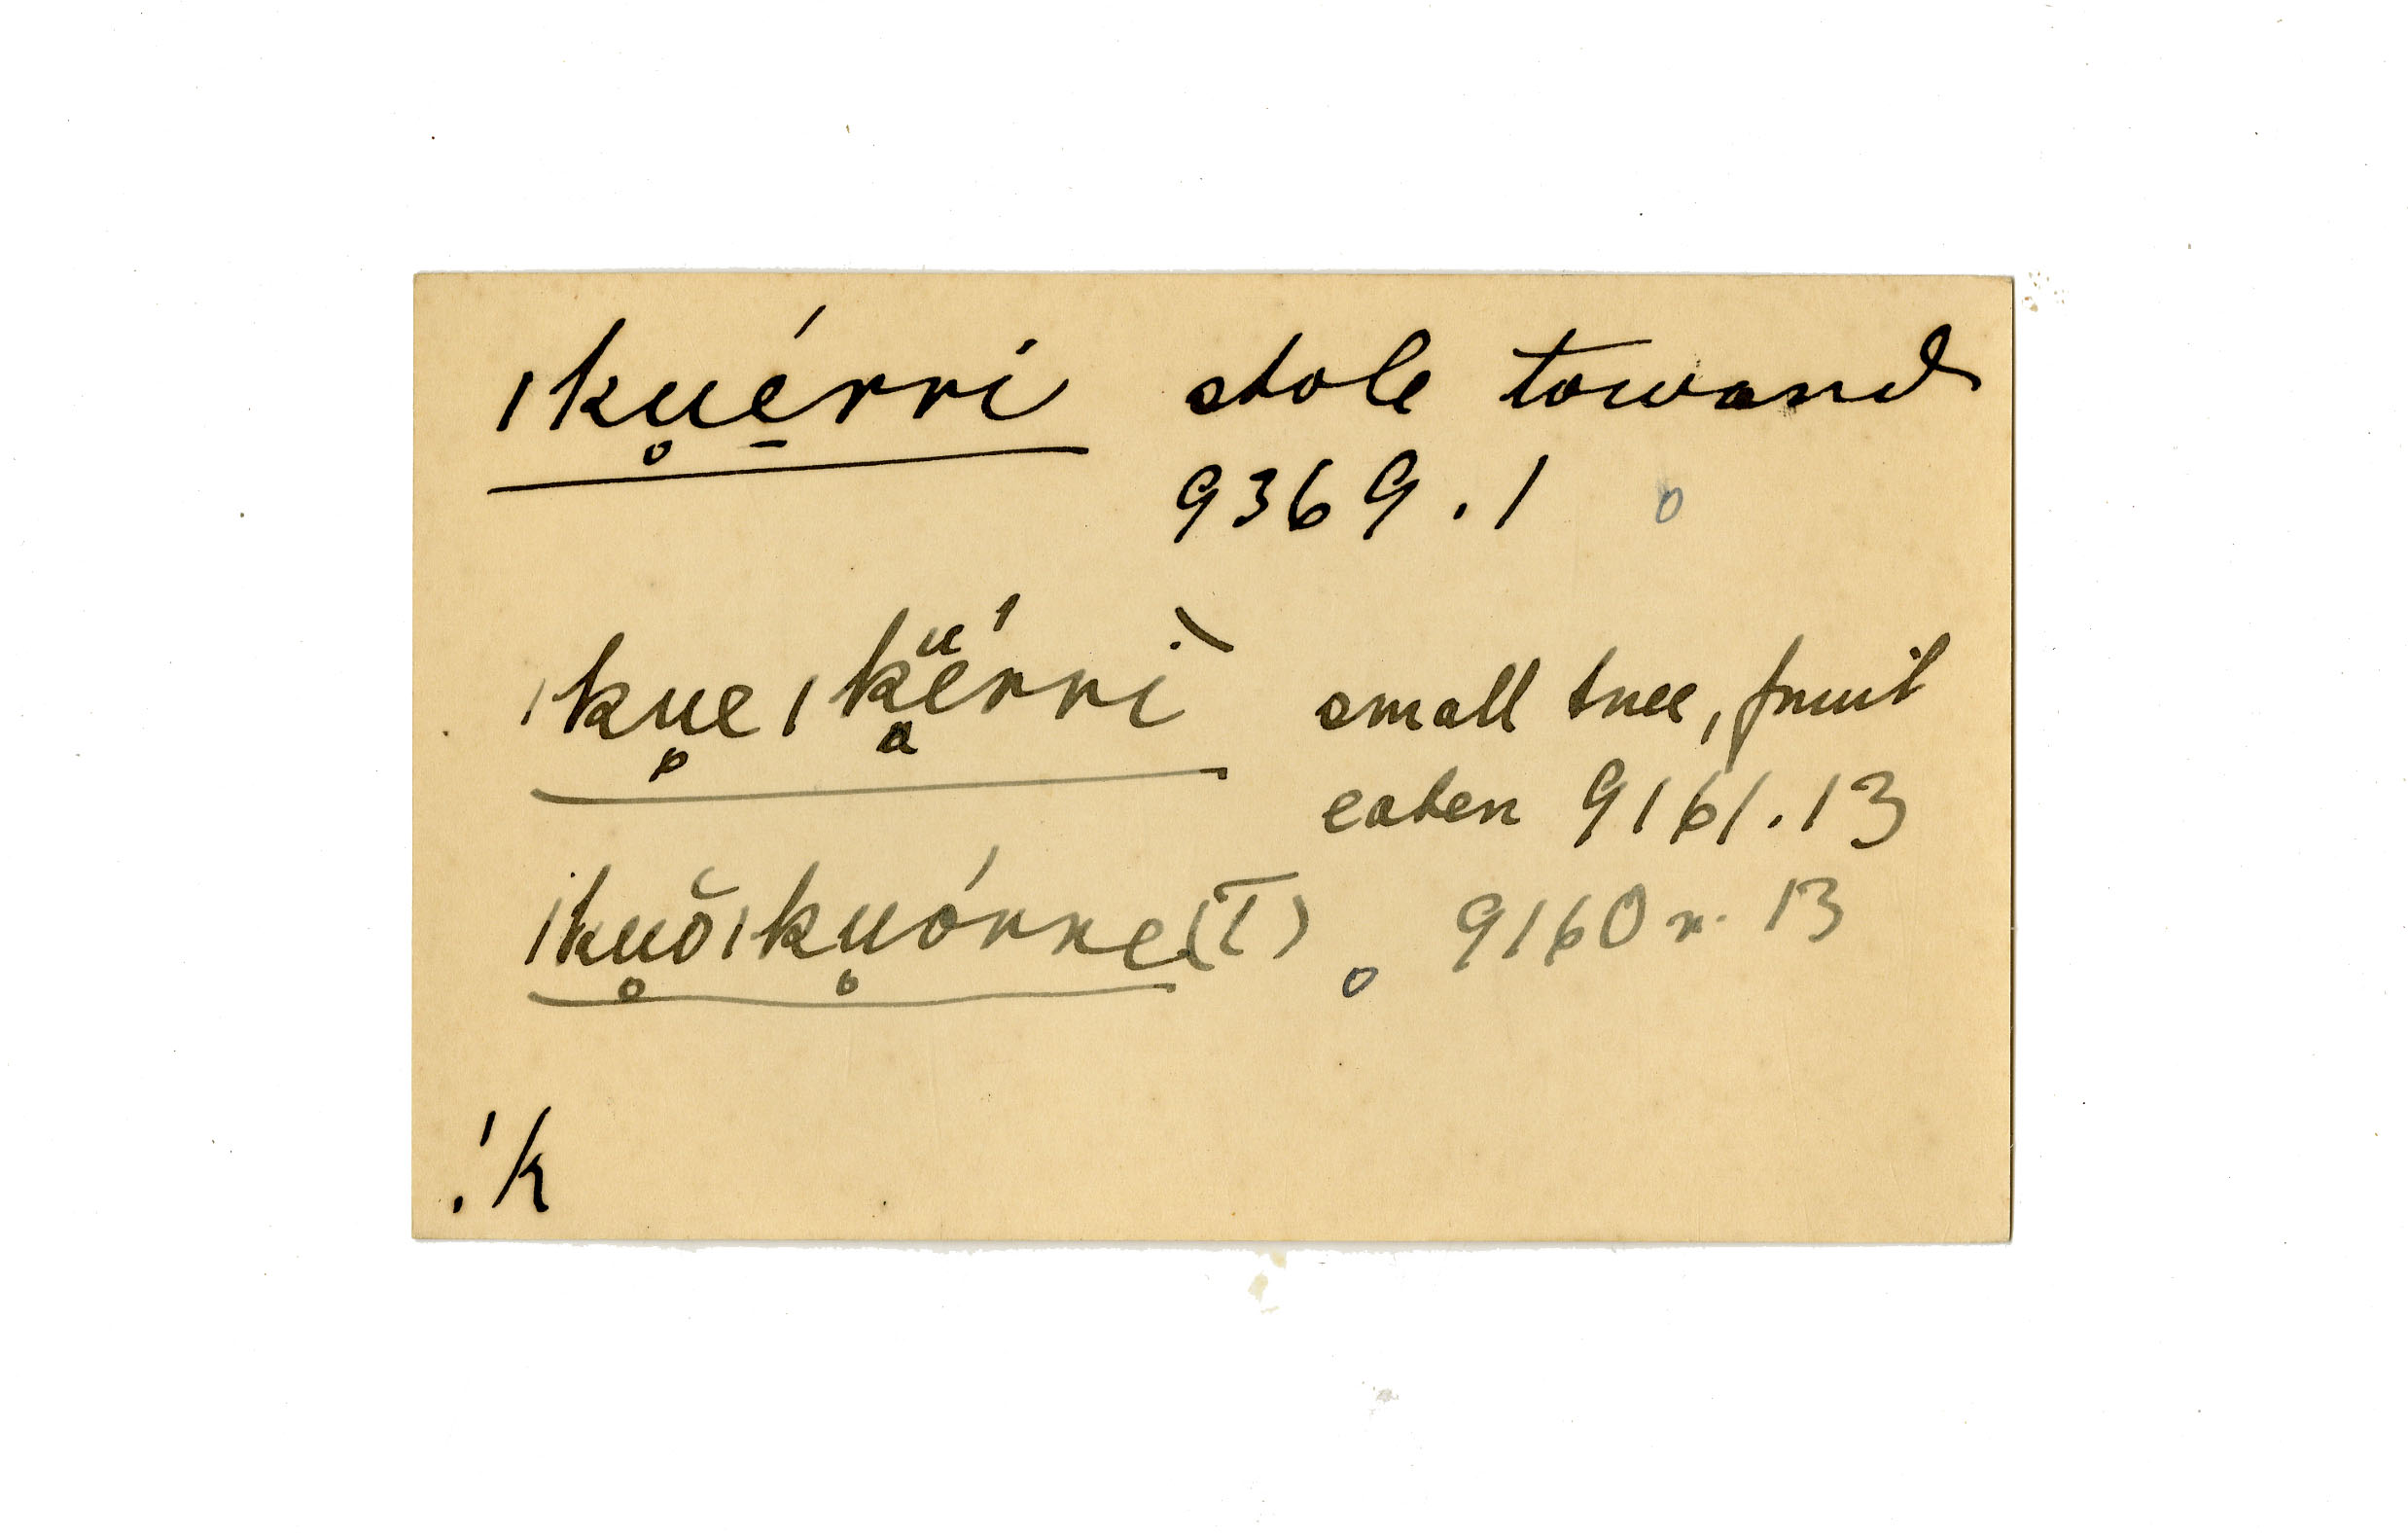 ǀku̥é̱rri stole toward
9369.1 o
ǀku̥eǀkᵘ̥érrĭ̀ small tree, fruit
eaten 9161.13
ǀku̥ŏǀku̥órre(T) o 9160 r. 13
!k